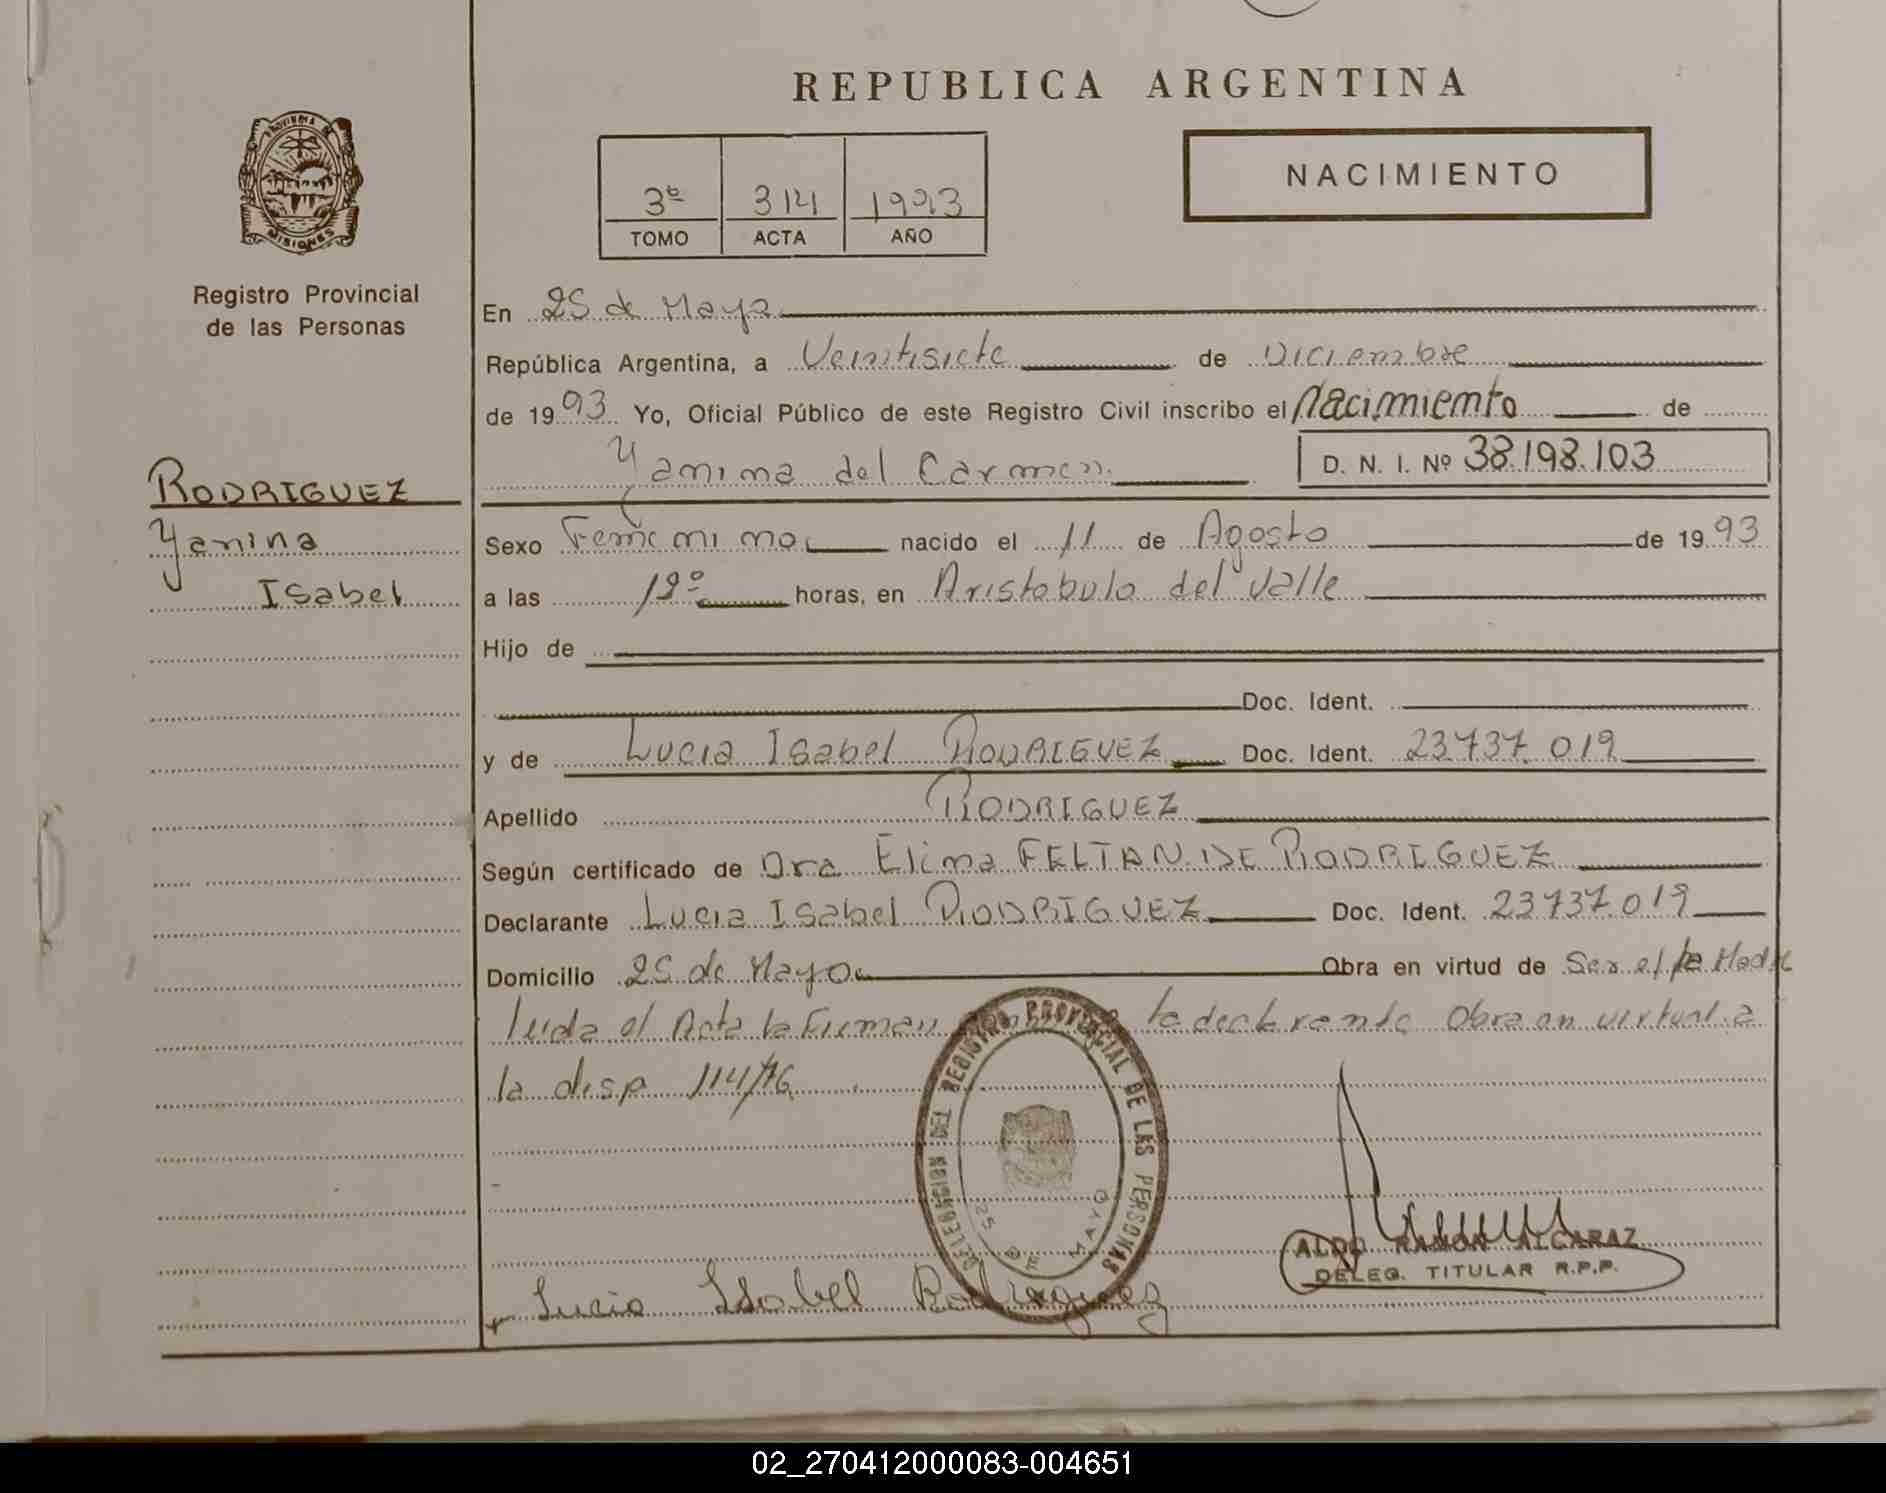 REPUBLICA ARGENTINA
PROVINCIA DE
MISIONES
Registro Provincial
de las Personas
3º 314 1993
TOMO ACTA AÑO
NACIMIENTO
En 25 de Mayo
República Argentina, a Veintisiete de Diciembre
de 1993 Yo, Oficial Público de este Registro Civil inscribo el Nacimiento de
Yanina del Carmen D. N. I. Nº 38.198.103
RODRIGUEZ
Yanina
Isabel
Sexo Femenino nacido el 11 de Agosto de 1993
a las horas, en Aristobulo del Valle
Hijo de
Doc. Ident.
y de Lucia Isabel RODRIGUEZ Doc. Ident. 23.737.019
Apellido RODRIGUEZ
Según certificado de Dra Elina FELTAN DE RODRIGUEZ
Declarante Lucia Isabel RODRIGUEZ Doc. Ident. 23.737.019
Domicilio 25 de Mayo Obra en virtud de Ser el la Madre
leida el Acta la Firman la declarante Obra en virtud a
la disp 114/76
DELEGACION DEL REGISTRO PROVINCIAL DE LAS PERSONAS
25 DE MAYO
ALDO RAMON ALCARAZ
DELEG. TITULAR R.P.P.
Lucia Isabel Rodriguez
02_270412000083-004651